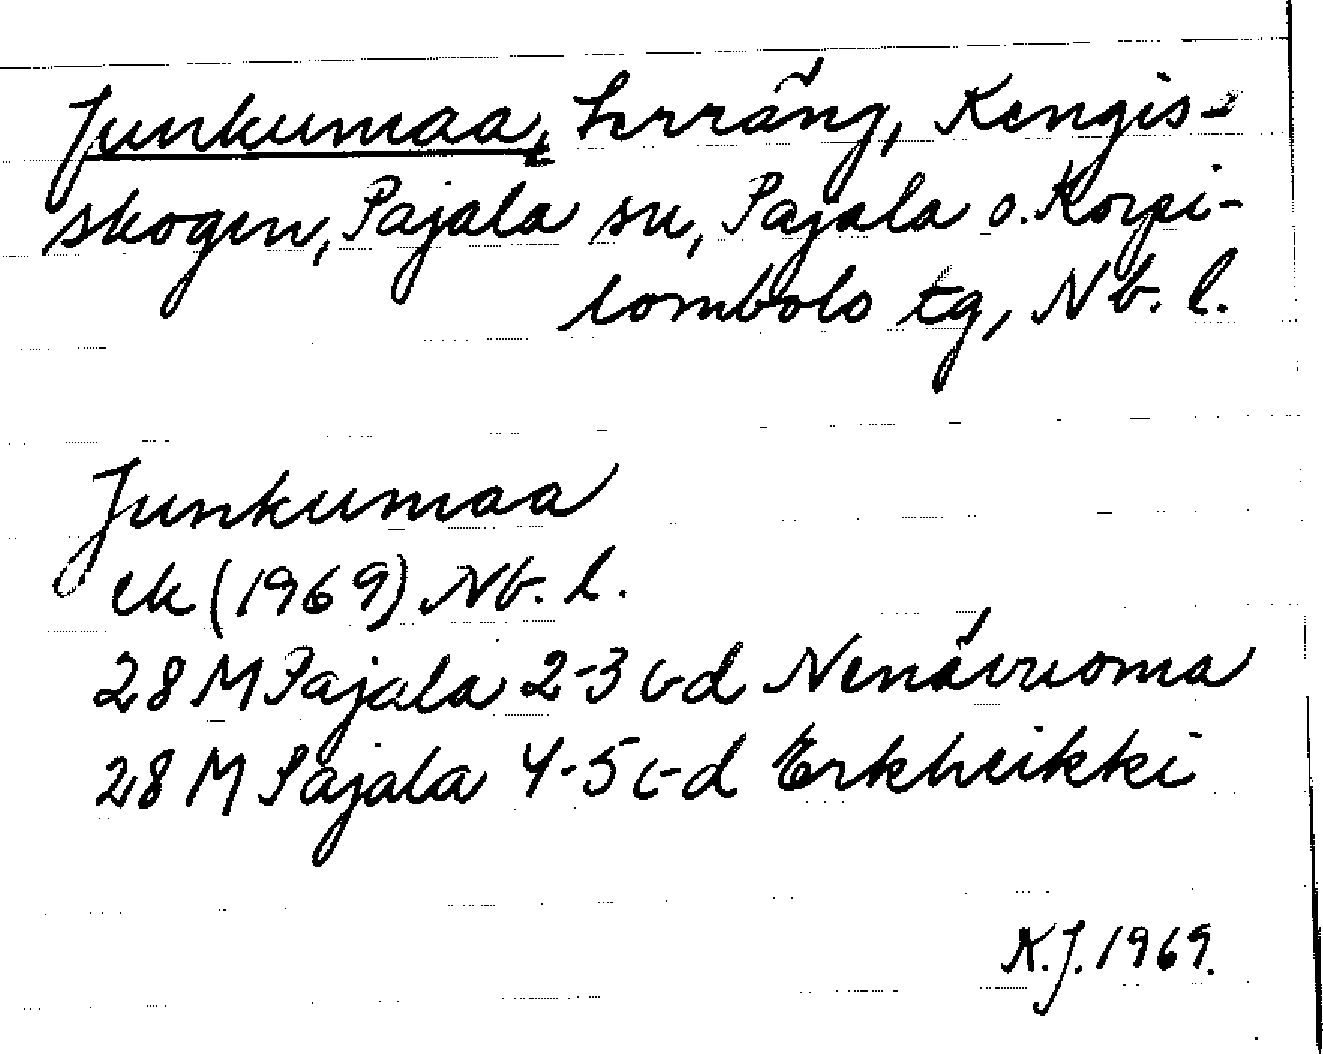 Junkumaa, terräng, Kengis-
skogen, Pajala sn, Pajala o. Korpi-
lombolo tg, Nb. l.
Junkumaa
ek (1969) Nb. l.
28 M Pajala 2-3 c-d Nenävuoma
28 M Pajala 4-5 c-d Erkheikki
K.J. 1969.